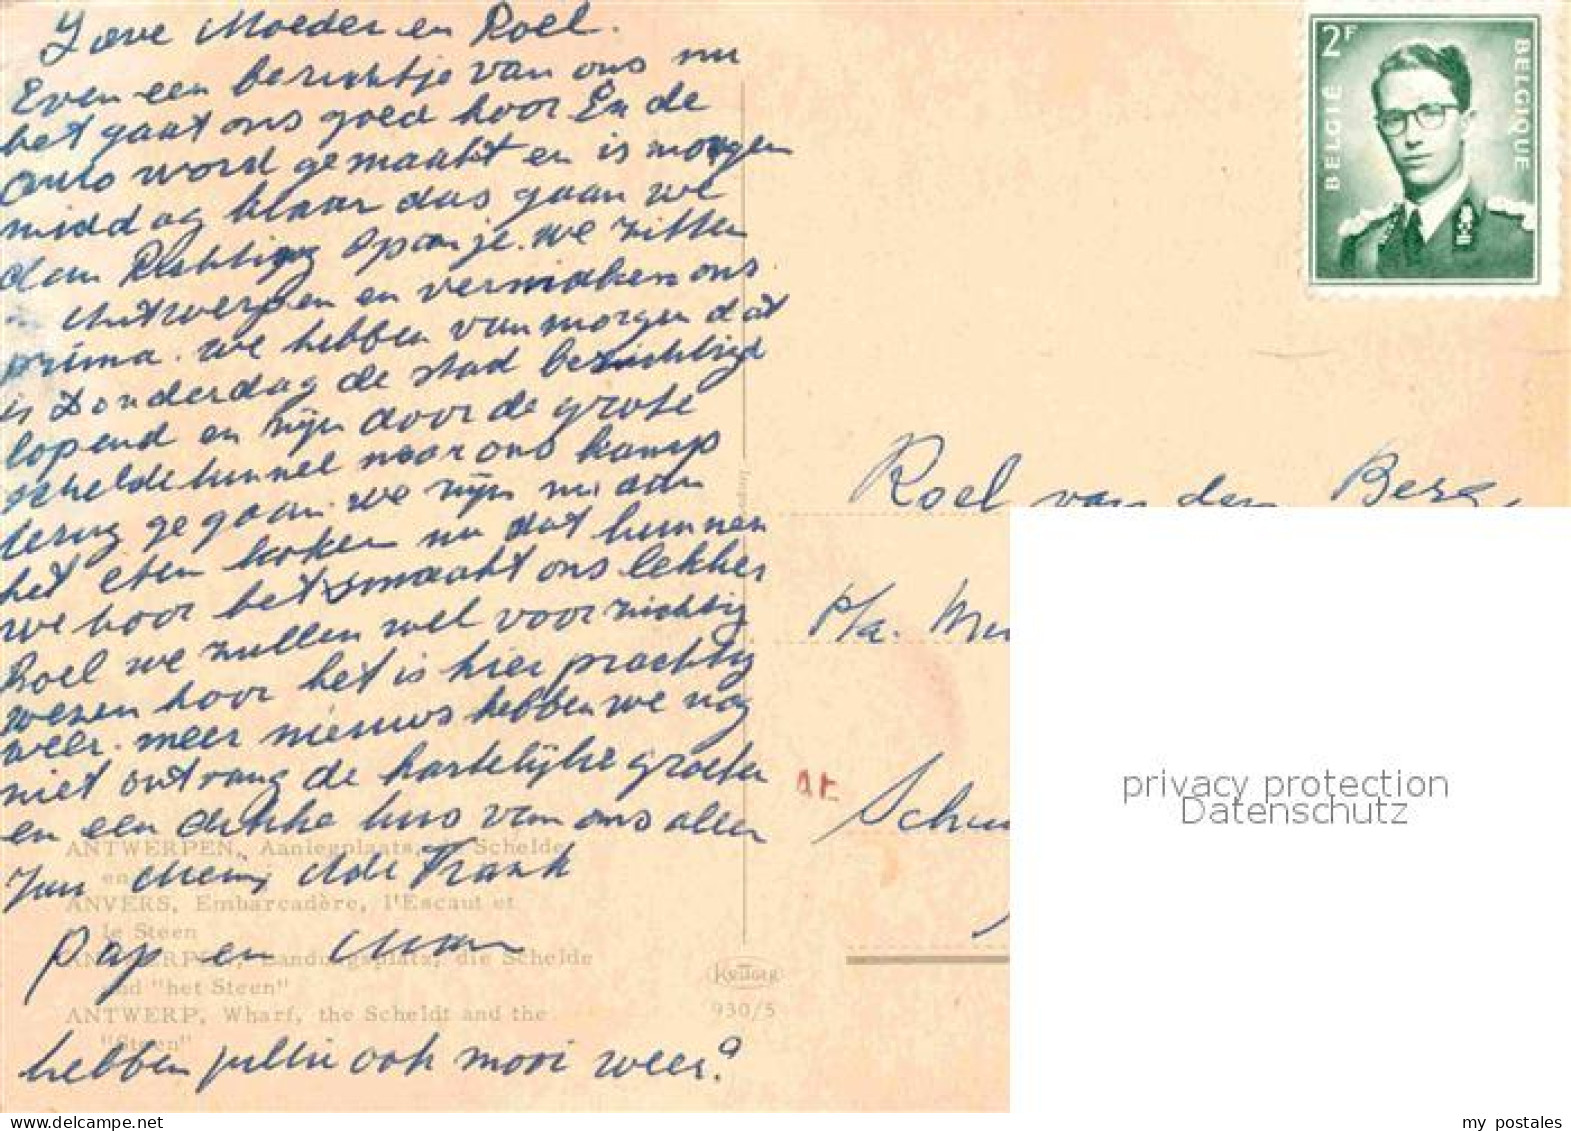 Lieve Moeder en Roel.
Even een berichtje van ons nu
het gaat ons goed hoor En de
auto word gemaakt en is morgen
middag klaar dus gaan we
dan Richting Spanje. we zitten
Antwerpen en vermaken ons
prima. we hebben vanmorgen dat
is Donderdag de stad bezichtigd
lopend en zijn door de grote
scheldetunnel naar ons kamp
terug gegaan. we zijn nu aan
het eten koken nu dat kunnen
we hoor het smaakt ons lekker
Roel we zullen wel voorzichtig
wezen hoor het is hier prachtig
weer. meer nieuws hebben we nog
niet ontvang de hartelijke groeten
en een dikke kus van ons allen
Frank
pap en Mam
hebben jullie ook mooi weer?
ANTWERPEN, Aanlegplaats, Schelde
en
ANVERS, Embarcadère, l'Escaut et
le Steen
ANTWERPEN, Landungsplatz, die Schelde
und "het Steen"
ANTWERP, Wharf, the Scheldt and the
"Steen"
KRÜGER
930/5
2F
BELGIË
BELGIQUE
Roel van den Berg,
P/a.
privacy protection
Datenschutz
my postales